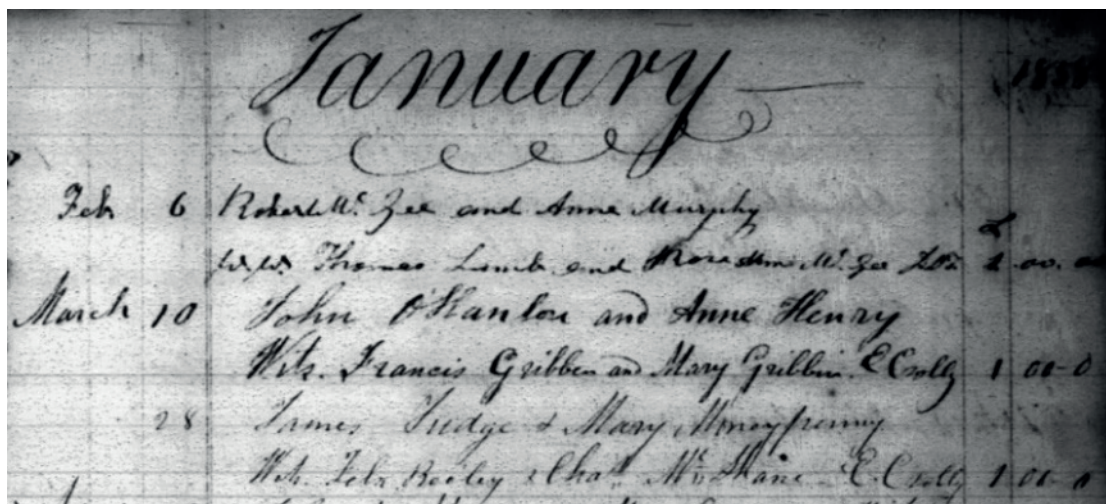 January
Feb 6 Robert Mc Gee and Anne Murphy
Thomas Lamb and Rose Mc Gee 00
March 10 John O'Hanlon and Anne Henry
Wits. Francis Gribben and Mary Gribbin E Crolly 1 00-0
28 James Judge & Mary Moneypenny
Wits. & Chas. Mc Shane E. Crolly 1 00-0